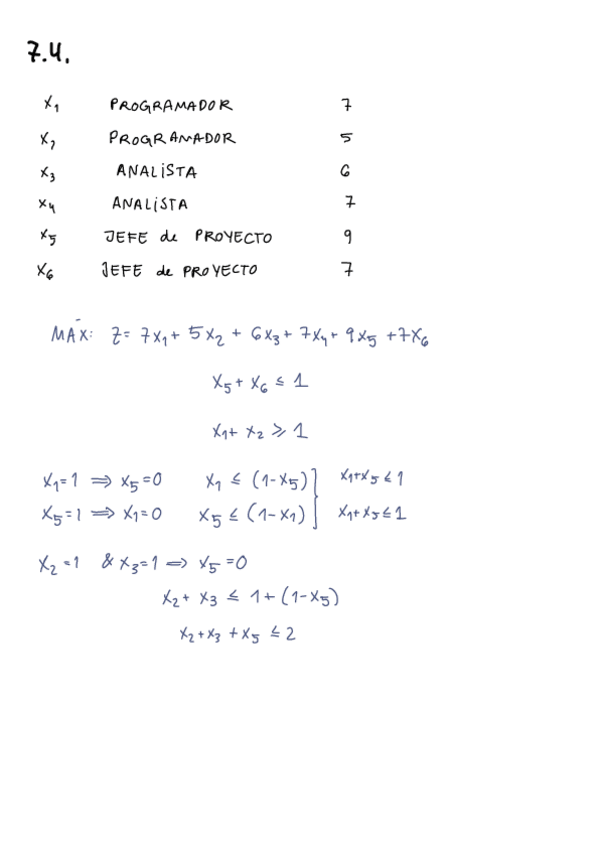 7.4.
x₁ PROGRAMADOR 7
x₂ PROGRAMADOR 5
x₃ ANALISTA 6
x₄ ANALISTA 7
x₅ JEFE de PROYECTO 9
x₆ JEFE de PROYECTO 7
MÁX: Z = 7x₁ + 5x₂ + 6x₃ + 7x₄ + 9x₅ + 7x₆
x₅ + x₆ ≤ 1
x₁ + x₂ ≥ 1
x₁=1 ⟹ x₅=0 x₁ ≤ (1-x₅) x₁+x₅ ≤ 1
x₅=1 ⟹ x₁=0 x₅ ≤ (1-x₁) x₁+x₅ ≤ 1
x₂=1 & x₃=1 ⟹ x₅=0
x₂ + x₃ ≤ 1 + (1-x₅)
x₂ + x₃ + x₅ ≤ 2